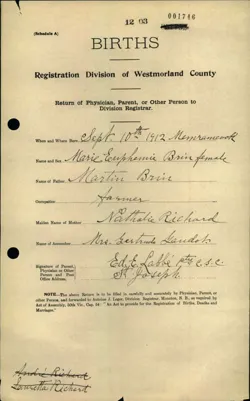 12 03
001746
(Schedule A)
BIRTHS
Registration Division of Westmorland County
Return of Physician, Parent, or Other Person to
Division Registrar.
When and Where Born, Sept 10th 1912 Memramcook
Name and Sex Marie Euphemie Brin female
Name of Father, Martin Brin
Occupation farmer
Maiden Name of Mother Nathalie Richard
Name of Accoucheur, Mrs. Gertrude
Signature of Parent,
Physician or Other
Person and Post
Office Address.
Ed. E. Labbé ptre c.s.c.
St Joseph
NOTE.—The above Return is to be filled in carefully and accurately by Physician, Parent or
other Person, and forwarded to Antoine J. Leger, Division Registrar, Moncton, N. B., as required by
Act of Assembly, 50th Vic. Cap. 5 "An Act to provide for the Registration of Births, Deaths and
Marriages."
Richard